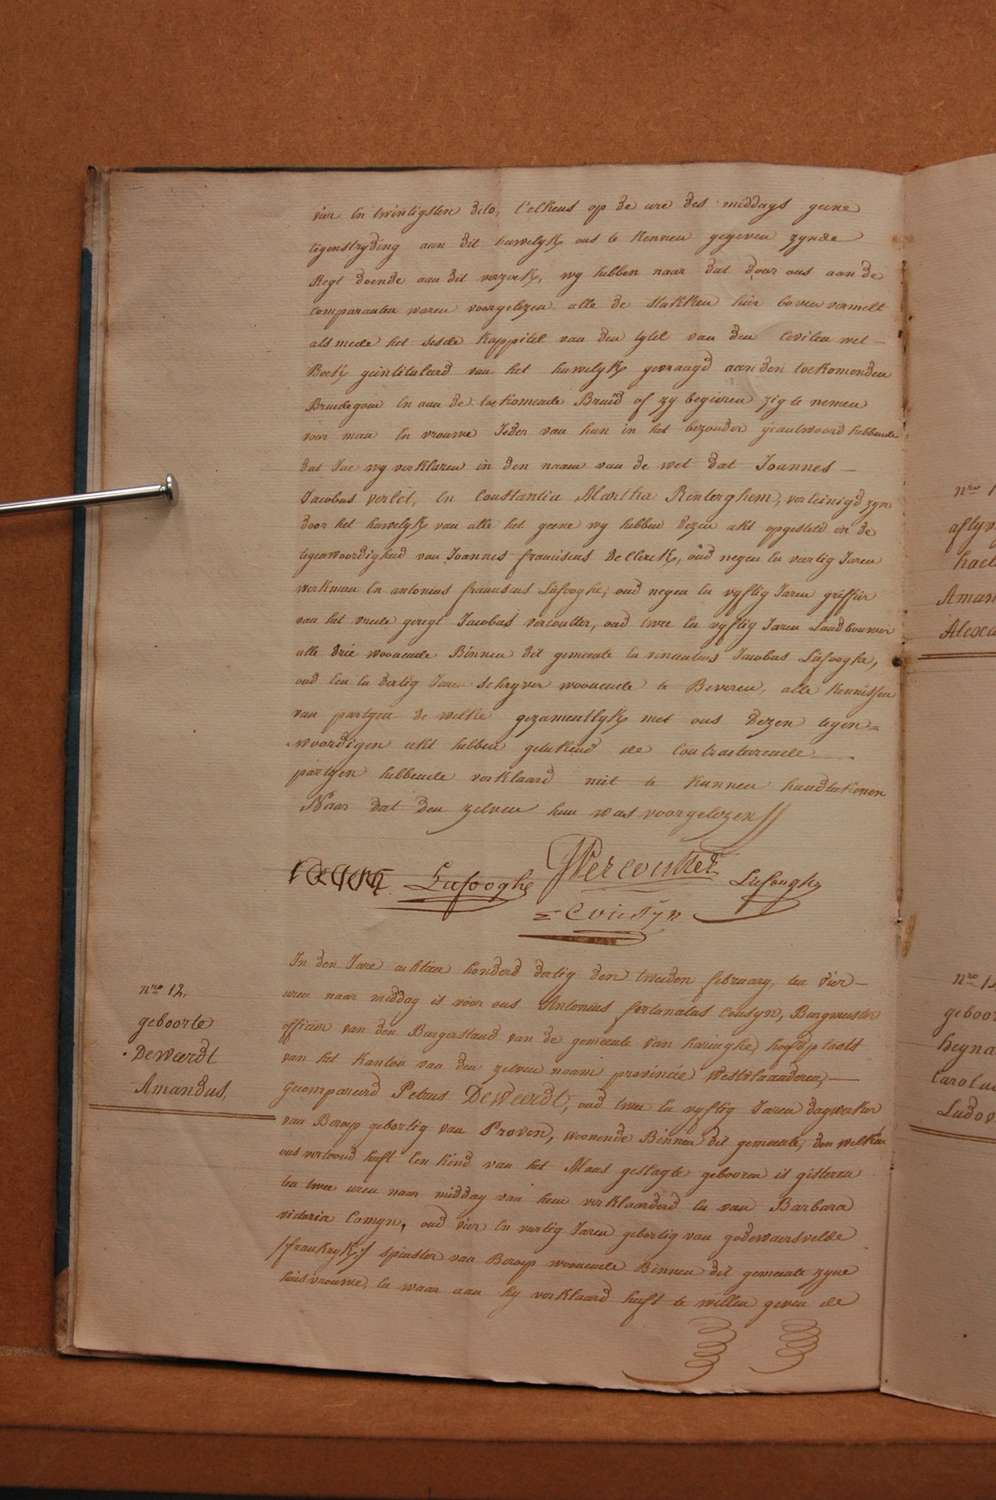 vier en twintigsten dito, t'elkens op de ure des middags geene
tegenstryding aan dit huwelyk ons te kennen gegeven zynde
Regt doende aan dit verzoek, wy hebben naar dat door ons aan de
Comparanten waren voorgelezen alle de stukken hier boven vermelt
als mede het sesde kappitel van den tytel van den Civilen wet-
Boek geintituleerd van het huwelyk gevraagd aan den toekomenden
Bruidegom en aan de toekomende Bruid of zy begeiren zig te nemen
voor man en vrouwe Ieder van hun in het bezonder geantwoord hebbende
dat Jae wy verklaren in den naam van de wet dat Joannes -
Jacobus verlet, en Constantia Martha Rinterghem, vereinigd zyn
door het huwelyk van alle het geene wy hebben dezen akt opgesteld in de
tegenwoordigheid van Joannes franciscus deClerck, oud negen en veertig Jaren
werkman en antonius franciscus Lafooghe, oud negen en vyftig Jaren griffier
van het vrede geregt Jacobus vercoutter, oud twee en vyftig Jaren Landbouwer
alle drie woonende Binnen dit gemeente en venantius Jacobus Lafooghe,
oud een en dertig Jaren schryver woonende te Beveren, alle kennissen
van partyen de welke gezamentlyk met ons dezen tegen=
woordigen akt hebben getekend de Contracterende
partyen hebbende verklaard niet te kunnen handtekenen
Naar dat den zelven hun was voorgelezen //
Lafooghe JVercoutter Lafooghe
= Cousyn
nro 12.
geboorte
DeWeerdt
Amandus,
In den Jare achtien honderd dertig den tweeden february, ten vier -
uren naar middag is voor ons Antonius fortunatus Cousyn, Burgmeester
officier van den Burgerstand van de gemeente van haringhe, hoofdplaats
van het kanton van den zelven naam provincie Westvlaanderen, -
Gecompareerd Petrus DeWeerdt, oud twee en vyftig Jaren dagwerker
van Beroep geboortig van Proven, woonende Binnen dit gemeente, den welken
ons vertoond heeft een kind van het Maas geslagte geboren is gisteren
ten twee uren naar middag van hem verklaarderd en van Barbara
victoria Camyn, oud vier en veertig Jaren geboortig van godewaersvelde
/frankryk/ spinster van Beroep woonende Binnen dit gemeente zyne
huisvrouwe en waar aan hy verklaard heeft te willen geven de
nro 1
aflyv
hael
Aman
Alexa
nro 1
geboor
heyna
Carolus
Ludov